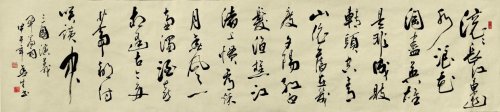 滚滚长江東逝
水浪花
淘盡英雄
是非成敗
轉頭空青
山依舊在幾
度夕陽紅白
髮漁樵江
渚上慣看秋
月春風一
壺濁酒喜
相逢古今多
少事都付
笑談中
三國演義
甲午年